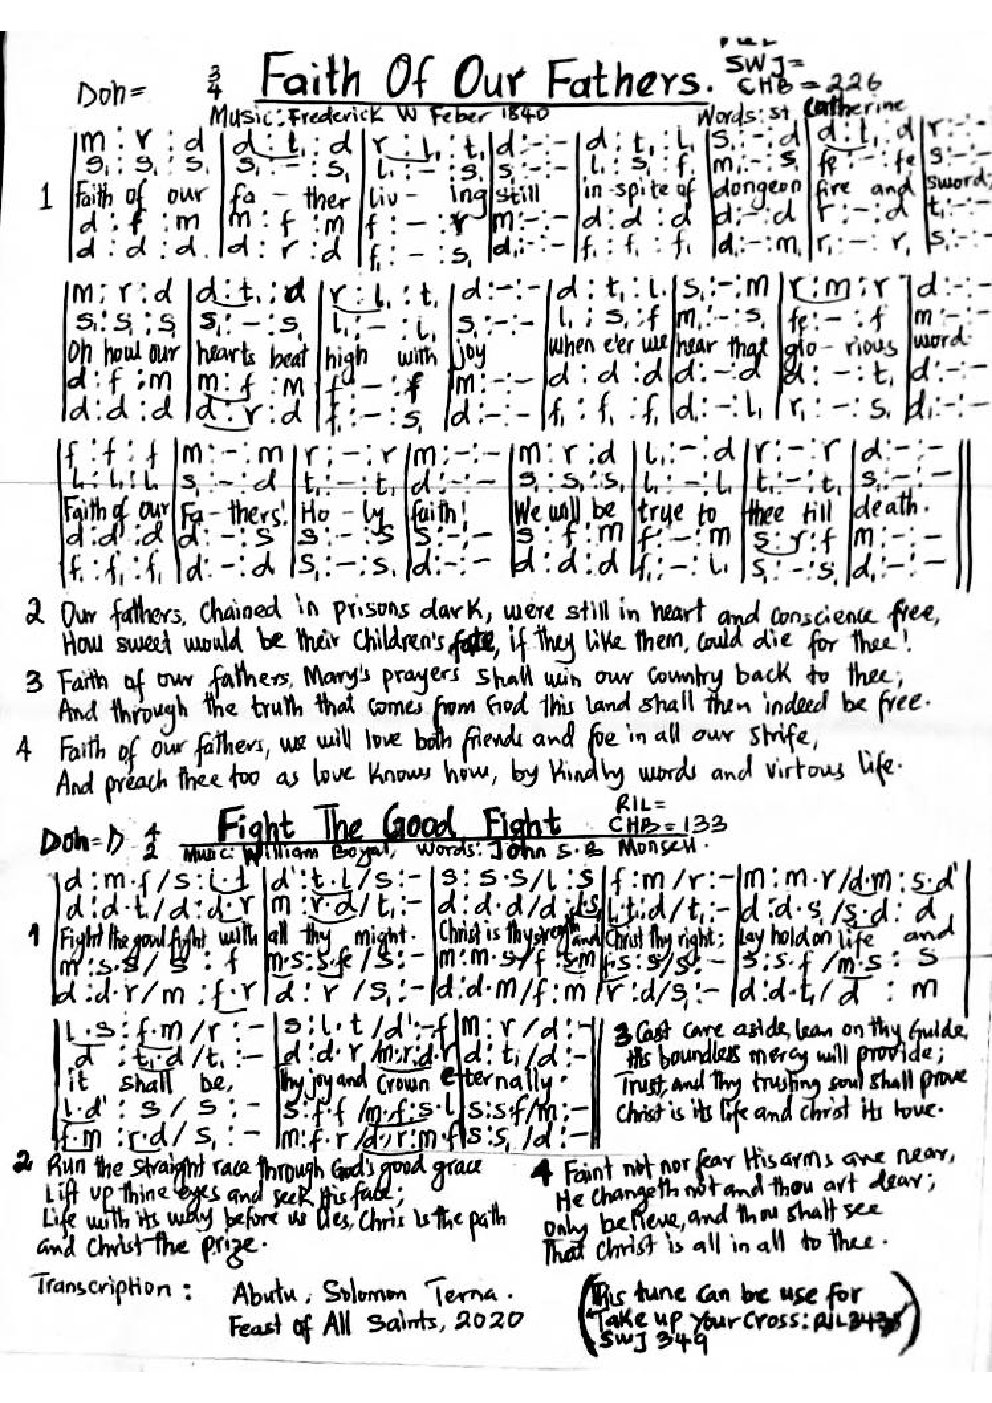 Doh= 3/4 Faith Of Our Fathers. SWJ=
CHB = 226
Music: Frederick W Feber 1840 Words: St Catherine
|m : r : d |d : t, : d |r : l, : t, |d : - : - |d : t, : l, |s, : - : d |d : t, : d |r : - : -
|s, : s, : s, |s, : - : s, |l, : - : s, |s, : - : - |l, : s, : f, |m, : - : s, |fe, : - : fe |s : - : -
1 Faith of our fa - ther liv - ing still in spite of dongeon fire and sword;
|d : f : m |m : f : m |f : - : r |m : - : - |d : d : d |d : - : d |r : - : d |t, : - : -
|d : d : d |d : r : d |f, : - : s, |d, : - : - |f, : f, : f, |d, : - : m, |r, : - : r, |s, : - : -
|m : r : d |d : t, : d |r : l, : t, |d : - : - |d : t, : l, |s, : - : m |r : m : r |d : - : -
|s, : s, : s, |s, : - : s, |l, : - : l, |s, : - : - |l, : s, : f |m, : - : s, |fe, : - : f |m : - : -
Oh how our hearts beat high with joy when e'er we hear that glo - rious word.
|d : f : m |m : f : m |f : - : f |m : - : - |d : d : d |d : - : d |d : - : t, |d : - : -
|d : d : d |d : r : d |f, : - : s, |d : - : - |f, : f, : f, |d, : - : l, |r, : - : s, |d, : - : -
|f : f : f |m : - : m |r : - : r |m : - : - |m : r : d |l, : - : d |r : - : r |d : - : -
|l, : l, : l, |s, : - : d |t, : - : t, |d : - : - |s, : s, : s, |l, : - : l, |t, : - : t, |s, : - : -
Faith of our Fa - thers! Ho - ly faith! We will be true to thee till death.
|d : d : d |d : - : s |s : - : s |s : - : - |s : f : m |f : - : m |s : r : f |m : - : -
|f, : f, : f, |d : - : d |s, : - : s, |d : - : - |d : d : d |f, : - : l, |s, : - : s, |d, : - : -
2 Our fathers, chained in prisons dark, were still in heart and conscience free,
How sweet would be their children's fate, if they like them, could die for thee!
3 Faith of our fathers, Mary's prayers shall win our country back to thee;
And through the truth that comes from God this land shall then indeed be free.
4 Faith of our fathers, we will love both friends and foe in all our strife,
And preach thee too as love knows how, by kindly words and virtous life.
Doh=D 4/2 Fight The Good Fight RIL=
CHB=133
Music: William Boyal, Words: John S.B Monsell.
|d : m.f/s : l.t |d' : t.l/s : - |s : s.s/l : s |f : m/r : - |m : m.r/d.m : s.d'
|d : d.t/d : d.r |m : r.d/t, : - |d : d.d/d : d.ts, |l,.t, : d/t, : - |d : d.s,/s,.d : d
1 Fight the good fight with all thy might. Christ is thy strength and Christ thy right; Lay hold on life and
|m : s.s/s : f |m.s : s.fe/s : - |m : m.s/f : s.m |f.s : s/s : - |s : s.f/m.s : s
|d : d.r/m : f.r |d : r/s, : - |d : d.m/f : m |r : d/s, : - |d : d.t,/d : m
|l.s : f.m/r : - |s : l.t/d' : -f |m : r/d : -
|d : t,.d/t, : - |d : d.r/m.r : d.r |d : t,/d : -
it shall be, thy joy and crown eternally.
|l.d' : s/s : - |s : f.f/m.f : s.l |s : s.f/m : -
|f.m : r.d/s, : - |m : f.r/d.r : m.f |s : s,/d : -
3 Cast care aside, lean on thy Guide
His boundless mercy will provide;
Trust, and thy trusting soul shall prove
Christ is its life and christ its love.
2 Run the straight race through God's good grace
Lift up thine eyes and seek His face;
Life with its way before us lies, Chris is the path
and Christ the prize.
4 Faint not nor fear His arms are near,
He changeth not and thou art dear;
only believe, and thou shalt see
That Christ is all in all to thee.
Transcription: Abutu, Solomon Terna.
Feast of All Saints, 2020
(This tune can be use for
Take up your Cross: RIL
SWJ 349)